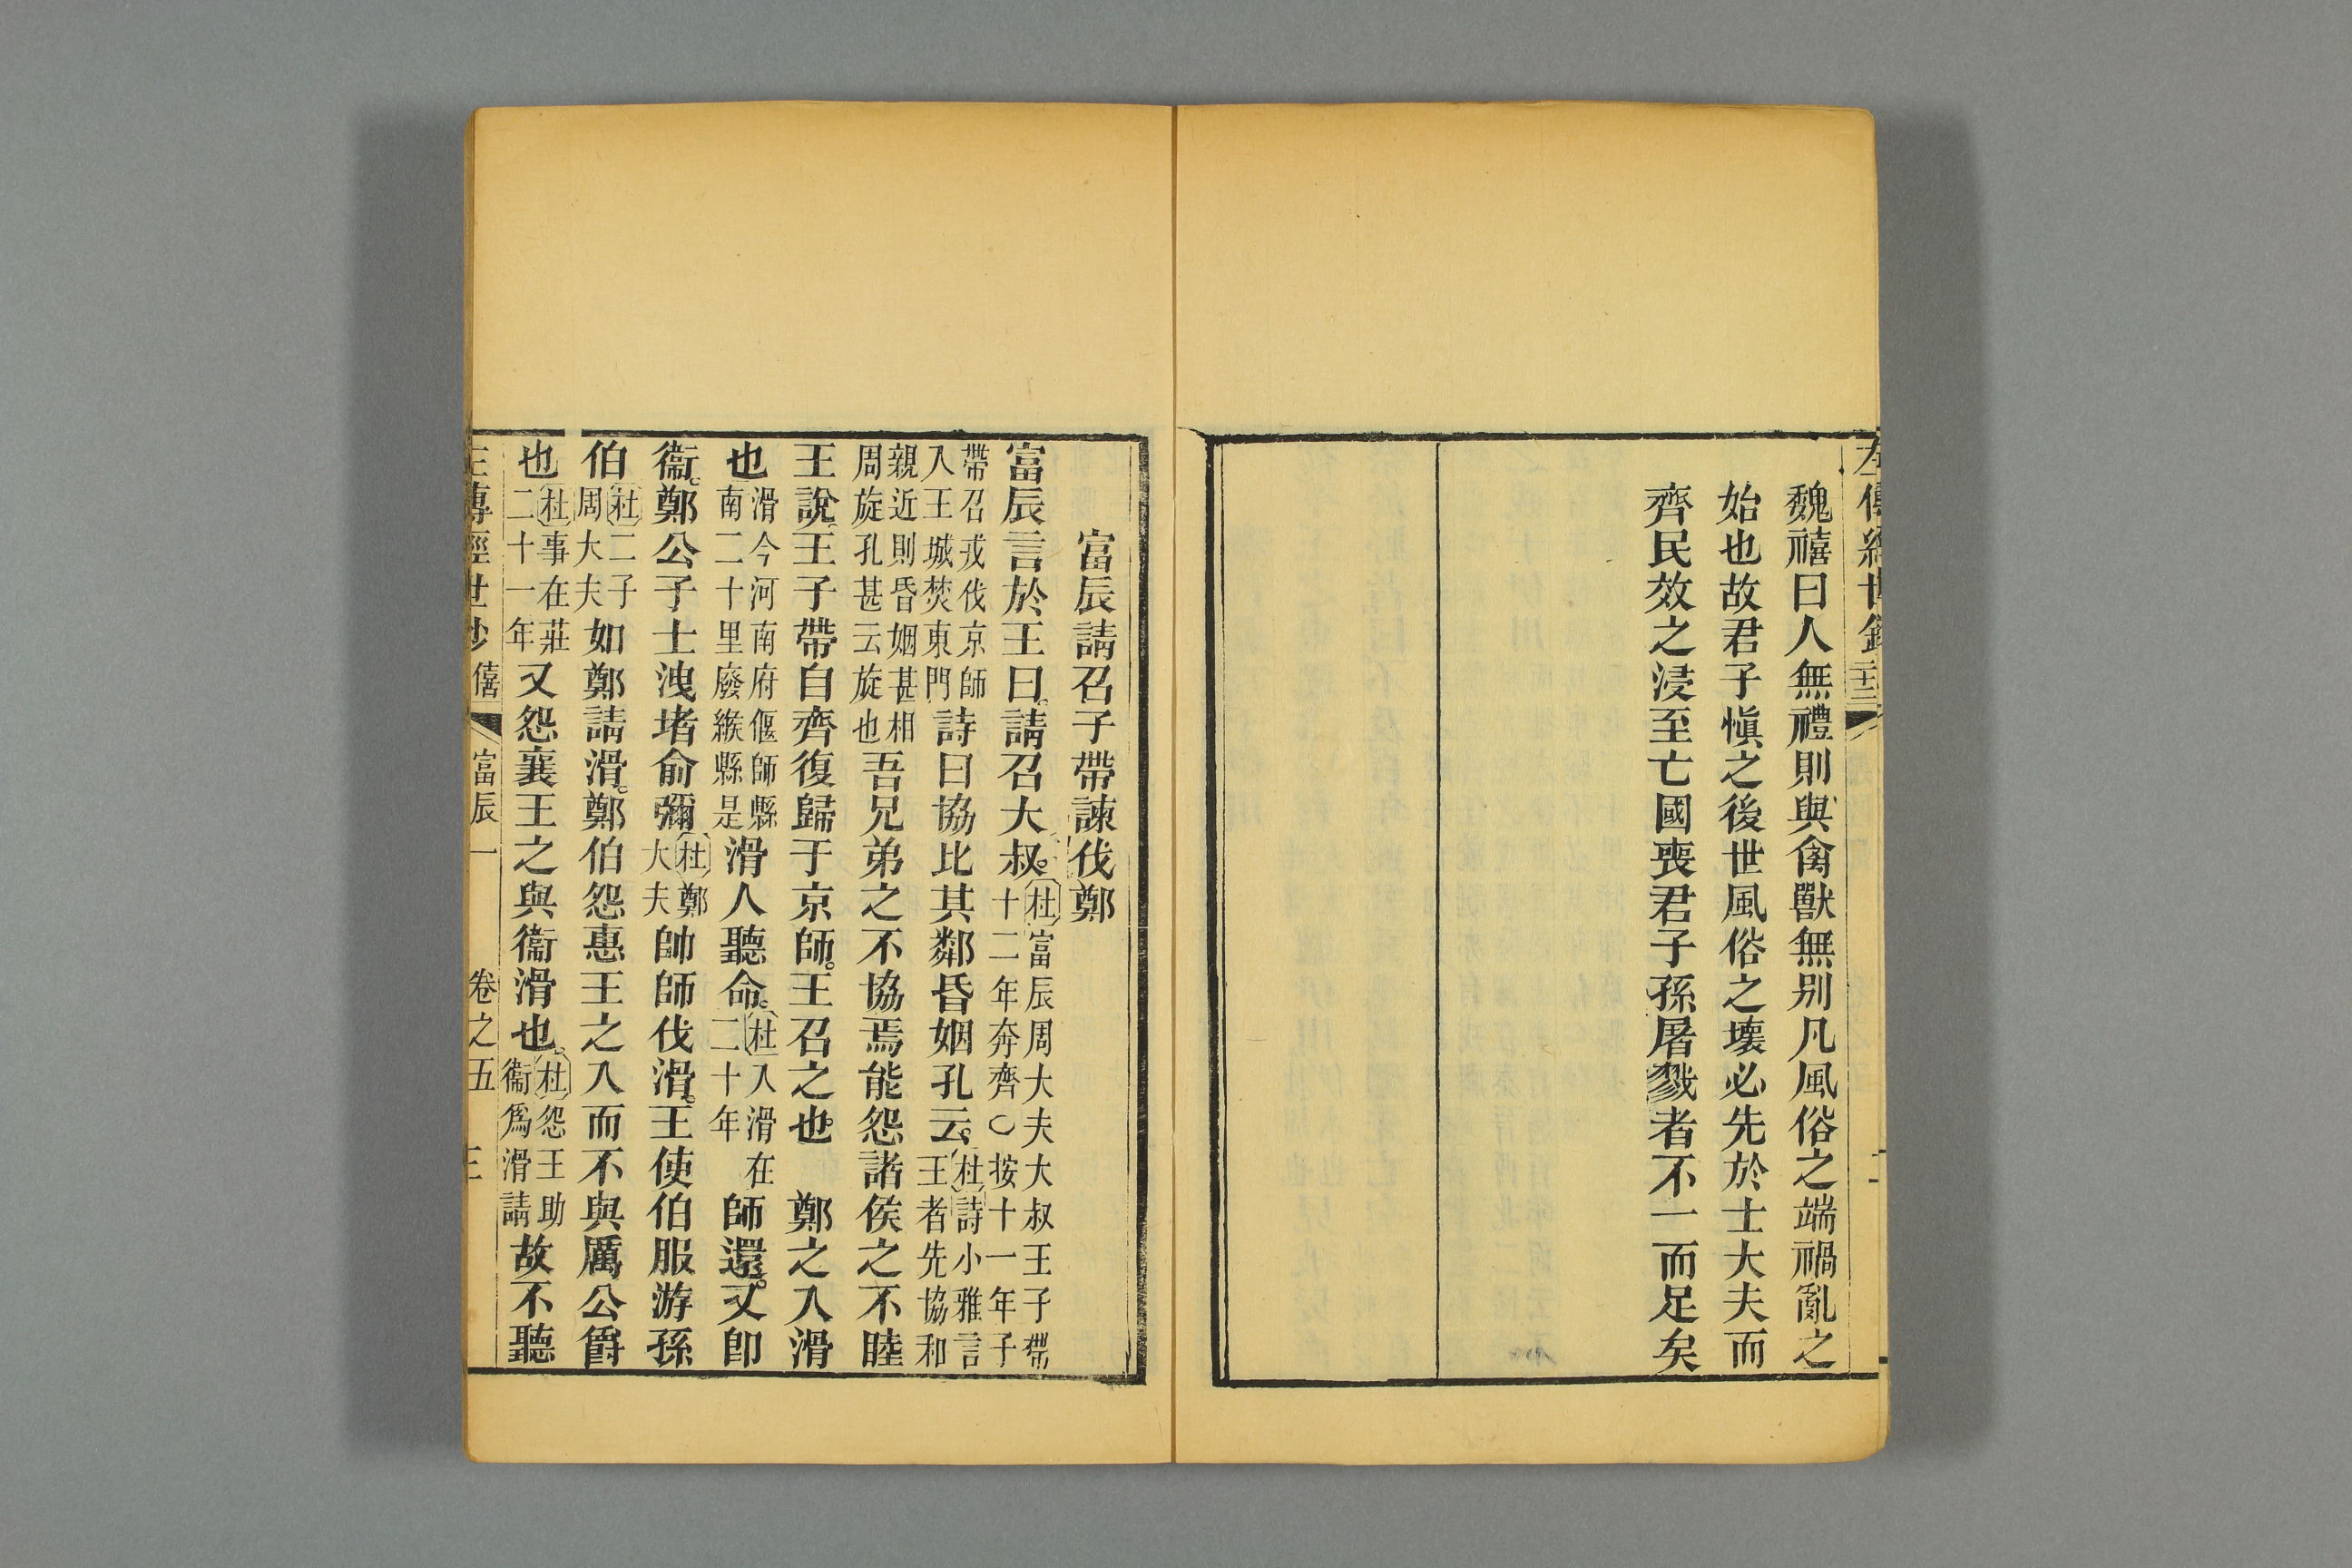 左傳經世鈔
魏禧曰人無禮則與禽獸無别凡風俗之端禍亂之
始也故君子愼之後世風俗之壞必先於士大夫而
齊民效之浸至亡國喪君子孫屠戮者不一而足矣
富辰請召子帶諫伐鄭
富辰言於王曰請召大叔杜富辰周大夫大叔王子帶十二年奔齊〇按十一年子
帶召戎伐京師入王城焚東門詩曰協比其鄰昏姻孔云杜詩小雅言王者先協和
親近則昏姻甚相周旋孔甚云旋也吾兄弟之不協焉能怨諸侯之不睦
王說王子帶自齊復歸于京師王召之也 鄭之入滑
也滑今河南府偃師縣南二十里廢緱縣是滑人聽命杜入滑在二十年師還又卽
衞鄭公子士洩堵俞彌杜鄭大夫帥師伐滑王使伯服游孫
伯杜二子周大夫如鄭請滑鄭伯怨惠王之入而不與厲公爵
也杜事在莊二十一年又怨襄王之與衞滑也杜怨王助衞爲滑請故不聽
左傳經世鈔 僖 富辰一 卷之五 三